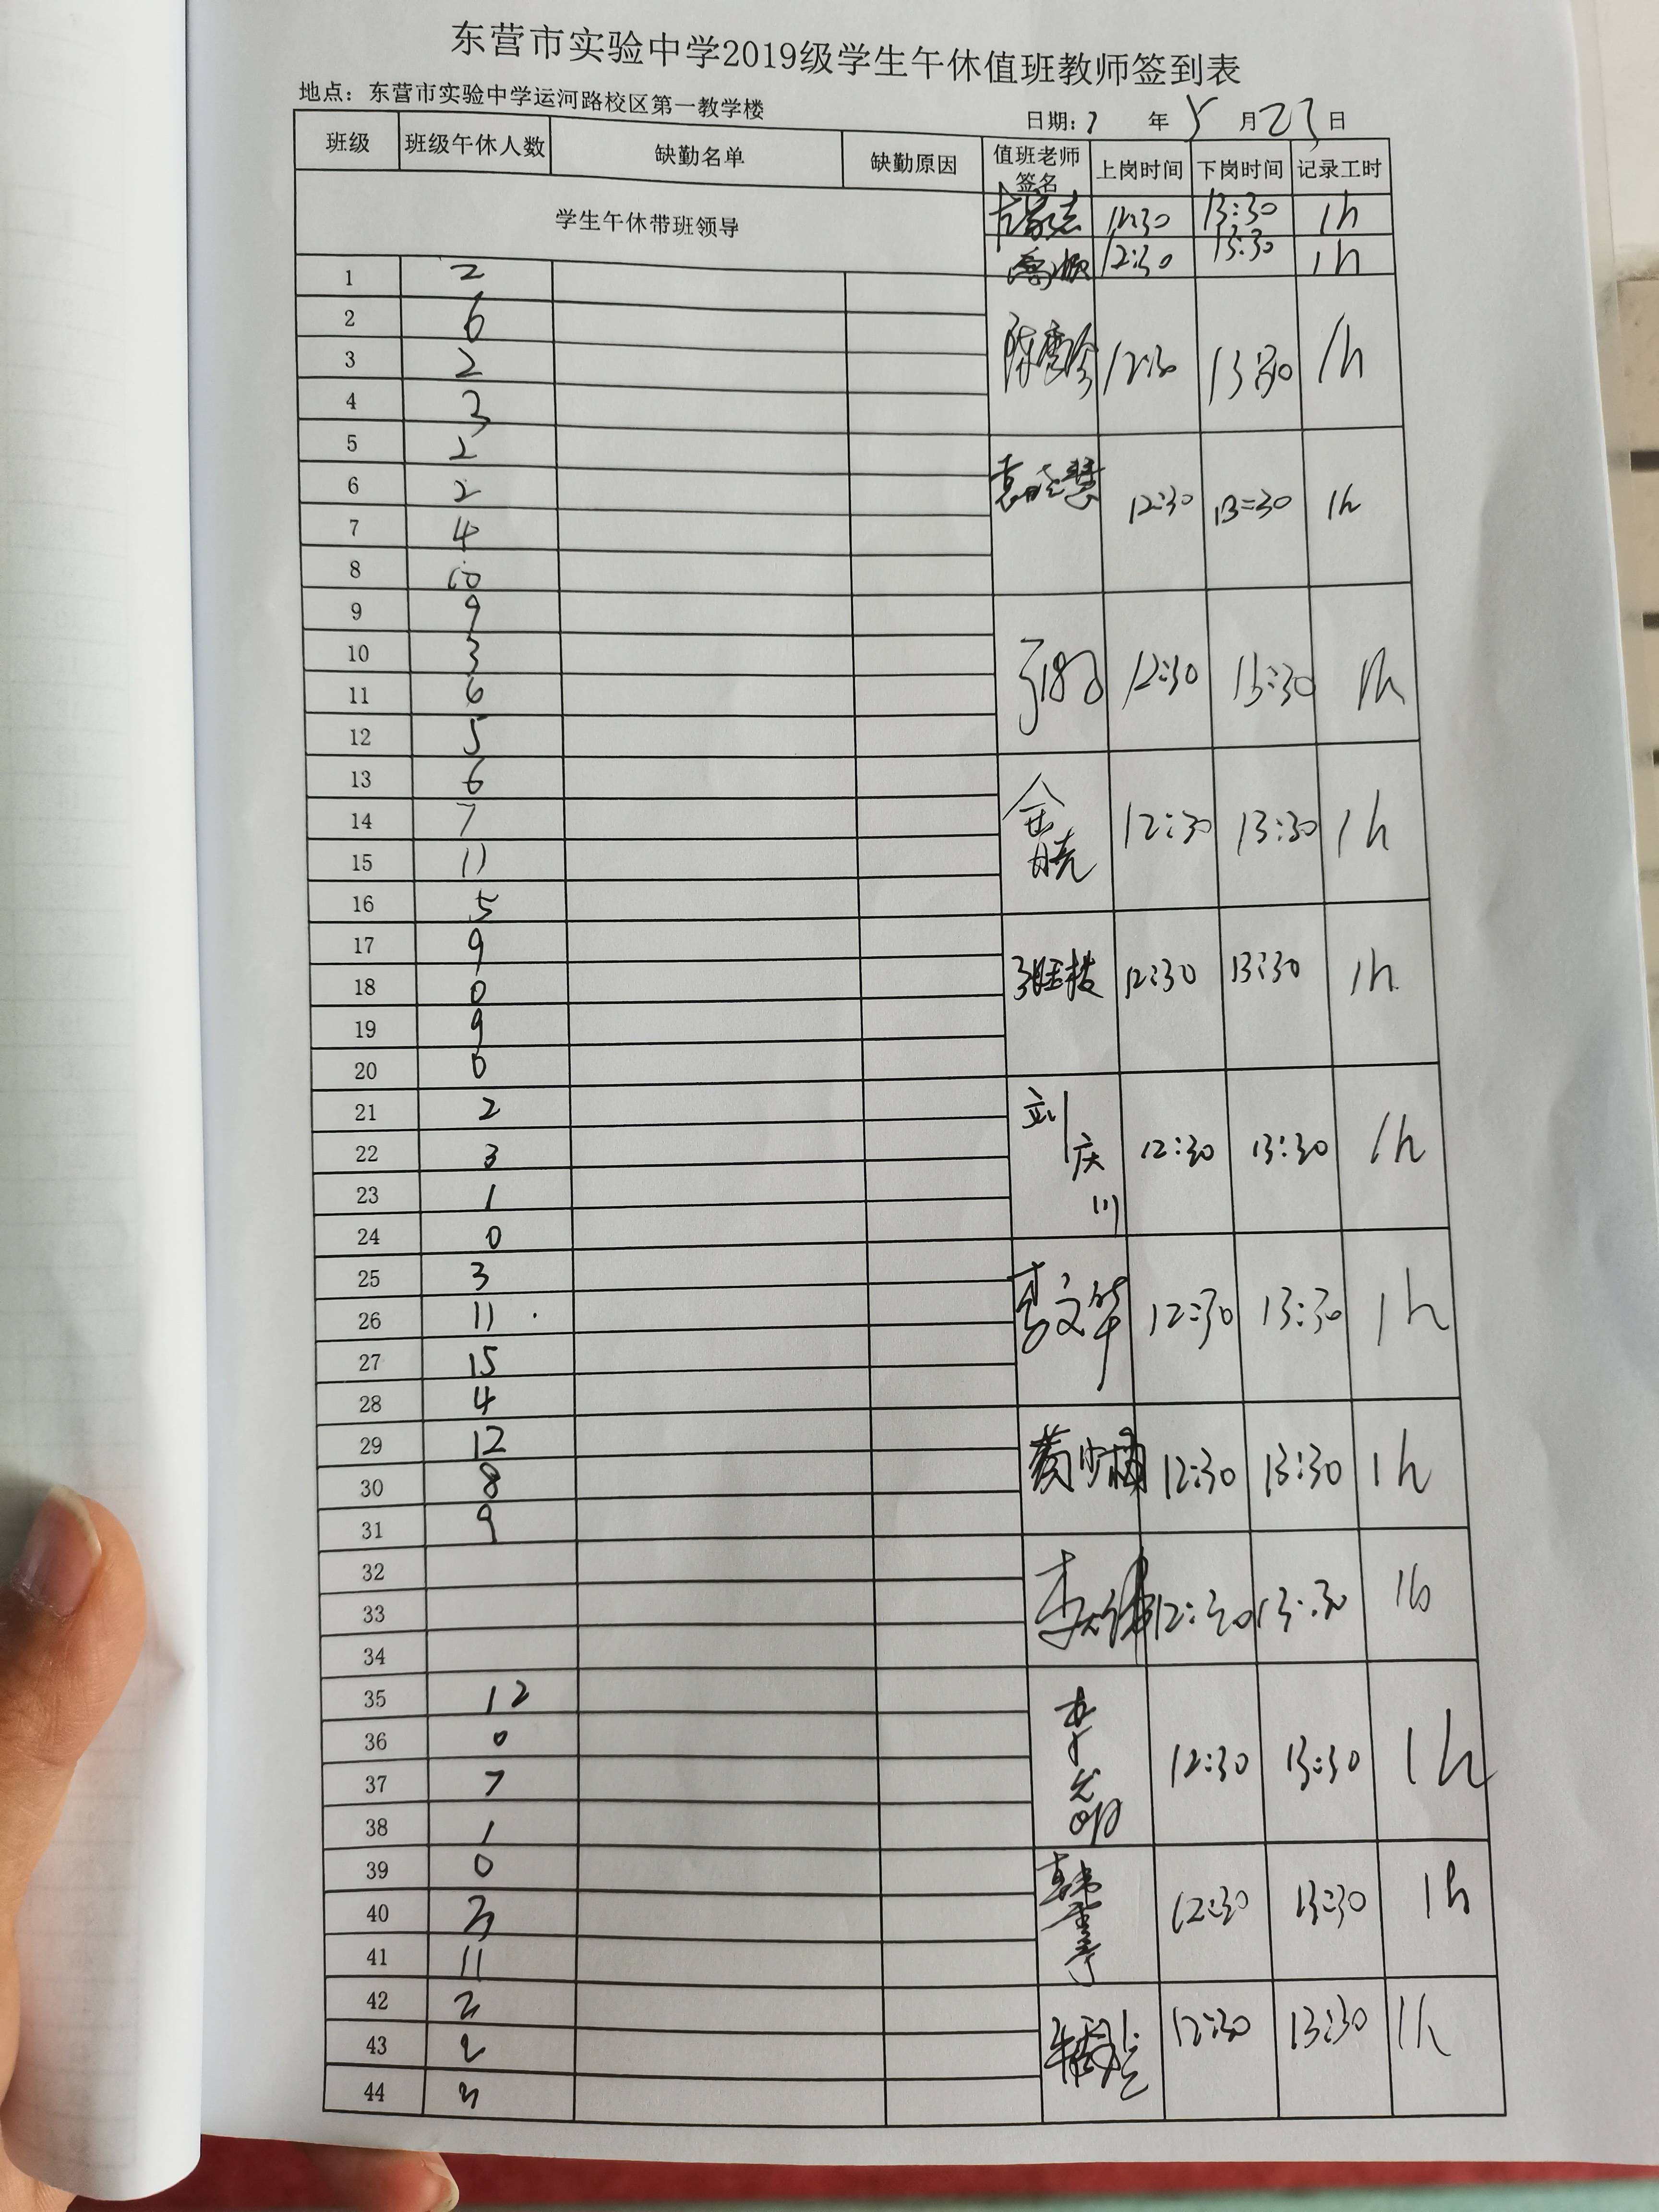 东营市实验中学2019级学生午休值班教师签到表
地点：东营市实验中学运河路校区第一教学楼
日期： 年 5 月 23 日
班级 班级午休人数 缺勤名单 缺勤原因 值班老师签名 上岗时间 下岗时间 记录工时
学生午休带班领导 12:30 13:30 1h
12:30 13:30 1h
1 2
2 6
3 2 12:30 13:30 1h
4 3
5 2
6 2 12:30 13:30 1h
7 4
8 10
9 9
10 3
11 6 12:30 13:30 1h
12 5
13 6
14 7 12:30 13:30 1h
15 11
16 5
17 9
18 0 12:30 13:30 1h
19 9
20 0
21 2
22 3 刘庆川 12:30 13:30 1h
23 1
24 0
25 3
26 11 李文华 12:30 13:30 1h
27 15
28 4
29 12
30 8 12:30 13:30 1h
31 9
32
33 12:30 13:30 1h
34
35 12
36 0
37 7 12:30 13:30 1h
38 1
39 0
40 3 12:30 13:30 1h
41 11
42 2
43 2 12:30 13:30 1h
44 3